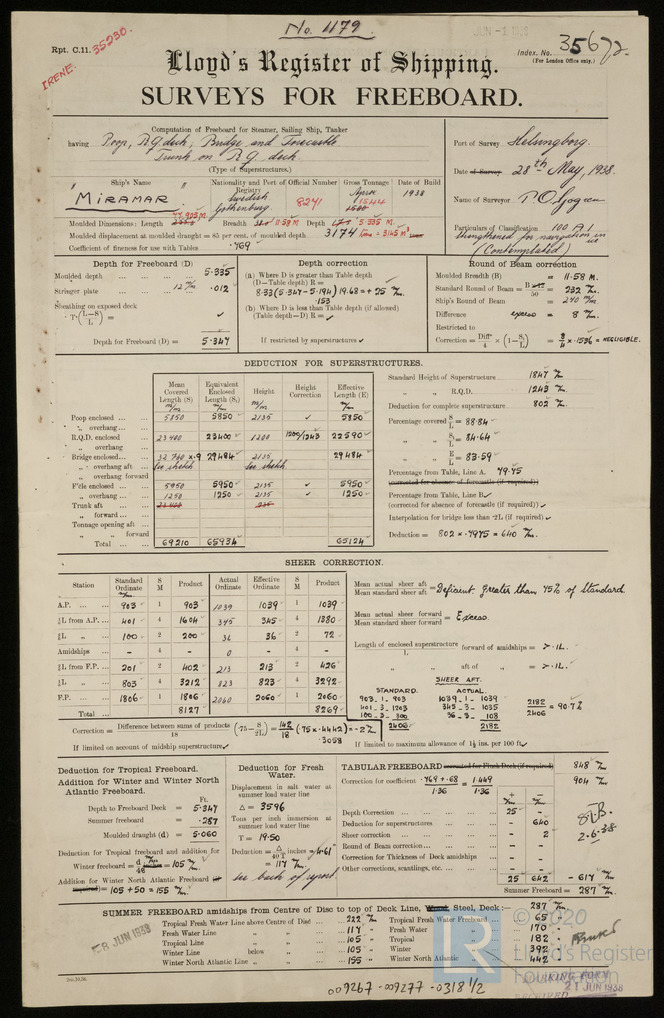 No. 1179
JUN -1 1938
Rpt. C.11. 35230.
Index. No. 35672.
(For London Office only.)
IRENE.
Lloyd's Register of Shipping.
SURVEYS FOR FREEBOARD.
Computation of Freeboard for Steamer, Sailing Ship, Tanker
having Poop, R.Q. deck, Bridge and Forecastle
Trunk on R.Q. deck.
(Type of Superstructures.)
Port of Survey Helsingborg.
Date of Survey 28th May, 1938.
Name of Surveyor
Particulars of Classification 100 A1
strengthened for navigation in ice
(Contemplated)
Ship's Name Nationality and Port of Registry Official Number Gross Tonnage Date of Build
"MIRAMAR" Swedish Gothenburg. 8241 1544 1938
Moulded Dimensions: Length 77.905 M. Breadth 11.58 M Depth 5.335 M.
Moulded displacement at moulded draught = 85 per cent. of moulded depth 3174
Coefficient of fineness for use with Tables .769
Depth for Freeboard (D)
Moulded depth 5.335
Stringer plate 12 m/m .012
Sheathing on exposed deck
T (L-S/L) =
Depth for Freeboard (D) = 5.347
Depth correction
(a) Where D is greater than Table depth
(D—Table depth) R=
8.33 (5.347 - 5.194) 19.68 = + 25 m/m.
.153
(b) Where D is less than Table depth (if allowed)
(Table depth—D) R =
If restricted by superstructures
Round of Beam correction
Moulded Breadth (B) = 11.58 M.
Standard Round of Beam = B/50 = 232 m/m.
Ship's Round of Beam = 240 m/m
Difference excess = 8 m/m.
Restricted to
Correction = Diff/4 × (1-S/L) = 8/4 × .1536 = NEGLIGIBLE.
DEDUCTION FOR SUPERSTRUCTURES.
Mean Covered Length (S) Equivalent Enclosed Length (S₁) Height Height Correction Effective Length (E)
Poop enclosed 5850 5850 2135 5850
„ overhang
R.Q.D. enclosed 23400 23400 1200 1200/1243 22590
„ overhang
Bridge enclosed 32760 × .9 29484 2135 29484
„ overhang aft See sketch See sketch.
„ overhang forward
F'cle enclosed 5950 5950 2135 5950
„ overhang 1250 1250 2135 1250
Trunk aft 23400
„ forward
Tonnage opening aft
„ „ forward
Total 69210 65934 65124
Standard Height of Superstructure 1847 m/m
„ „ R.Q.D. 1243 m/m.
Deduction for complete superstructure 802 m/m.
Percentage covered S/L = 88.84
„ „ S₁/L = 84.64
„ „ E/L = 83.59
Percentage from Table, Line A. 79.75
(corrected for absence of forecastle (if required))
Percentage from Table, Line B
(corrected for absence of forecastle (if required))
Interpolation for bridge less than .2L (if required)
Deduction = 802 × .7975 = 640 m/m.
SHEER CORRECTION.
Station Standard Ordinate S M Product Actual Ordinate Effective Ordinate S M Product
A.P. 903 1 903 1039 1039 1 1039
⅙L from A.P. 401 4 1604 345 345 4 1380
⅓L „ 100 2 200 36 36 2 72
Amidships - 4 - 0 - 4 -
⅓L from F.P. 201 2 402 213 213 2 426
⅙L „ 803 4 3212 823 823 4 3292
F.P. 1806 1 1806 2060 2060 1 2060
Total 8127 8269
Mean actual sheer aft / Mean standard sheer aft = Deficient. greater than 75% of Standard
Mean actual sheer forward / Mean standard sheer forward = Excess.
Length of enclosed superstructure / L forward of amidships = > .1L.
„ „ aft of „ = > .1L.
SHEER AFT.
STANDARD. ACTUAL.
903 . 1 - 903 1039 . 1 - 1039
401 . 3 - 1203 345 . 3 - 1035
100 . 3 - 300 36 . 3 - 108
2406 2182
2182/2406 = 90.7%
Correction = Difference between sums of products/18 (.75 - S/2L) = 142/18 (.75 × .4442) = -2 m/m
.3058
If limited on account of midship superstructure
If limited to maximum allowance of 1½ ins. per 100 ft
Deduction for Tropical Freeboard.
Addition for Winter and Winter North Atlantic Freeboard.
Ft.
Depth to Freeboard Deck = 5.347
Summer freeboard = .287
Moulded draught (d) = 5.060
Deduction for Tropical freeboard and addition for
Winter freeboard = d/48 = 105 m/m.
Addition for Winter North Atlantic Freeboard (if required) = 105 + 50 = 155 m/m.
Deduction for Fresh Water.
Displacement in salt water at summer load water line
Δ = 3596
Tons per inch immersion at summer load water line
T = 19.50
Deduction = Δ/40T inches = 4.61"
= 117 m/m.
See back of report
TABULAR FREEBOARD corrected for Flush Deck (if required) 848 m/m
Correction for coefficient .769 + .68 / 1.36 = 1.449 / 1.36 904 m/m.
+ -
Depth Correction 25 -
Deduction for superstructures - 640
Sheer correction - 2
Round of Beam correction - -
Correction for Thickness of Deck amidships - -
Other corrections, scantlings, etc. - -
25 642 - 617 m/m
Summer Freeboard = 287 m/m.
2-6-38
SUMMER FREEBOARD amidships from Centre of Disc to top of Deck Line, Wood, Steel, Deck :— 287 m/m.
Tropical Fresh Water Line above Centre of Disc 222 m/m Tropical Fresh Water Freeboard 65
Fresh Water Line „ „ 117 Fresh Water „ 170
Tropical Line „ „ 105 Tropical „ 182
Winter Line below „ 105 Winter „ 392
Winter North Atlantic Line „ „ 155 Winter North Atlantic „ 442
8 JUN 1938
© 2020
LR
Lloyd's Register
Foundation
21 JUN 1938
RECEIVED
009267-009277-0318 1/2